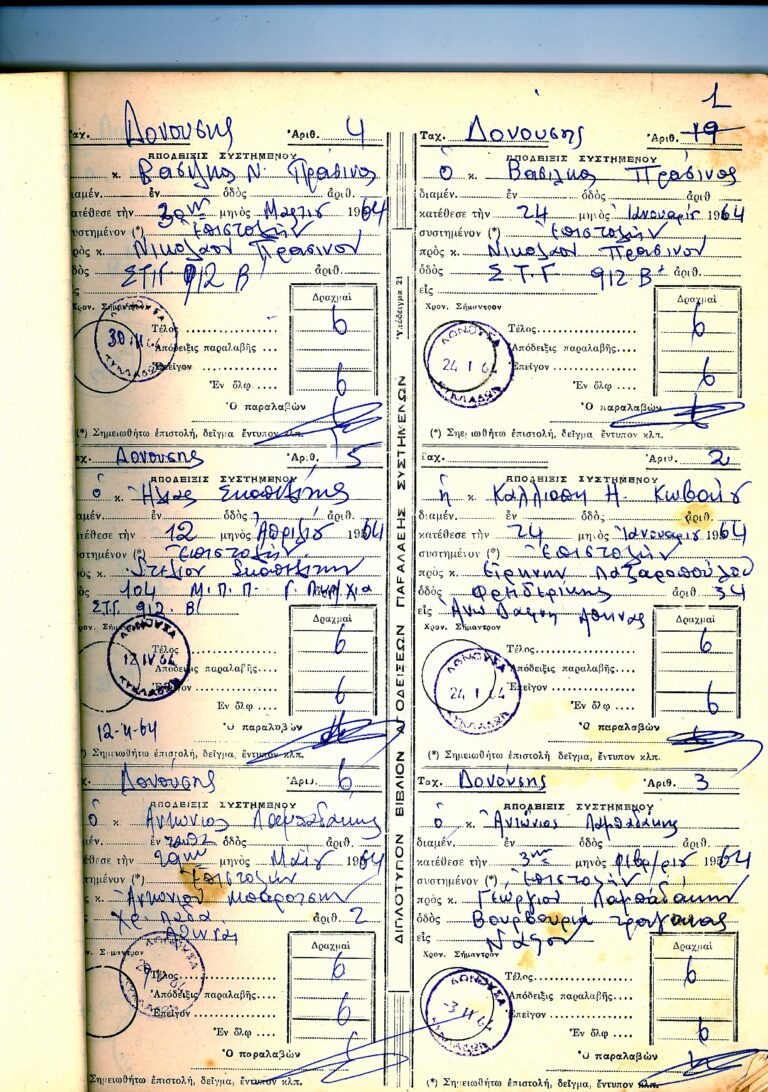 1
Ταχ. Δονούσης Ἀριθ. 4
ΑΠΟΔΕΙΞΙΣ ΣΥΣΤΗΜΕΝΟΥ
κ. Βασίλης Ν. Πράσινος
διαμέν. ἐν ὁδὸς ἀριθ.
κατέθεσε τὴν 30ην μηνὸς 1964
συστημένον (*) Ἐπιστολήν
πρὸς κ. Νικόλαον Πράσινον
ὁδὸς Σ.Τ.Γ. 912 Β ἀριθ.
εἰς
Χρον. Σήμαντρον
Δραχμαὶ
Τέλος 6
Ἀπόδειξις παραλαβῆς....
Ἐπεῖγον
Ἐν ὅλῳ .... 6
Ὁ παραλαβών
(*) Σημειωθήτω ἐπιστολή, δεῖγμα, ἔντυπον κλπ.
ΔΟΝΟΥΣΑ
ΚΥΚΛΑΔΩΝ
Ταχ. Δονούσης Ἀριθ. 5
ΑΠΟΔΕΙΞΙΣ ΣΥΣΤΗΜΕΝΟΥ
ὁ κ.
διαμέν. ἐν ὁδὸς ἀριθ.
κατέθεσε τὴν 12 μηνὸς 1964
συστημένον (*) Ἐπιστολήν
πρὸς κ.
104 Μ.Π.Π.
ΣΤΓ. 912 Β
Δραχμαὶ
Τέλος 6
Ἀπόδειξις παραλαβῆς....
Ἐπεῖγον
Ἐν ὅλῳ .... 6
ΔΟΝΟΥΣΑ
12 IV 64
ΚΥΚΛΑΔΩΝ
Ὁ παραλαβών
(*) Σημειωθήτω ἐπιστολή, δεῖγμα, ἔντυπον κλπ.
Δονούσης Ἀριθ. 6
ΑΠΟΔΕΙΞΙΣ ΣΥΣΤΗΜΕΝΟΥ
ὁ κ. Ἀντώνιος
διαμέν. ἐν ὁδὸς ἀριθ.
κατέθεσε τὴν μηνὸς Μαΐου 1964
συστημένον (*) Ἐπιστολήν
πρὸς κ. Ἀντωνίου
Χρ. Λαδᾶ ἀριθ. 2
Ἀθήνας
Χρον. Σήμαντρον
Δραχμαὶ
Τέλος 6
Ἀπόδειξις παραλαβῆς....
Ἐπεῖγον 6
Ἐν ὅλῳ ....
Ὁ παραλαβών
(*) Σημειωθήτω ἐπιστολή, δεῖγμα, ἔντυπον κλπ.
Ὑπόδειγμα 21
ΔΙΠΛΟΤΥΠΟΝ ΒΙΒΛΙΟΝ ΑΠΟΔΕΙΞΕΩΝ ΠΑΡΑΛΑΒΗΣ ΣΥΣΤΗΜΕΝΩΝ
Ταχ. Δονούσης Ἀριθ. 19
ΑΠΟΔΕΙΞΙΣ ΣΥΣΤΗΜΕΝΟΥ
Ὁ κ. Βασίλης Πράσινος
διαμέν. ἐν ὁδὸς ἀριθ.
κατέθεσε τὴν 24 μηνὸς Ἰανουαρίου 1964
συστημένον (*) Ἐπιστολήν
πρὸς κ. Νικόλαον Πράσινον
ὁδὸς Σ.Τ.Γ 912 Β ἀριθ.
εἰς
Χρον. Σήμαντρον
Δραχμαὶ
Τέλος 6
Ἀπόδειξις παραλαβῆς....
Ἐπεῖγον
Ἐν ὅλῳ .... 6
ΔΟΝΟΥΣΑ
24 I 64
ΚΥΚΛΑΔΩΝ
Ὁ παραλαβών
(*) Σημειωθήτω ἐπιστολή, δεῖγμα, ἔντυπον κλπ.
Ταχ. Ἀριθ. 2
ΑΠΟΔΕΙΞΙΣ ΣΥΣΤΗΜΕΝΟΥ
ἡ κ. Καλλιόπη Η.
διαμέν. ἐν ὁδὸς ἀριθ.
κατέθεσε τὴν 24 μηνὸς Ἰανουαρίου 1964
συστημένον (*) Ἐπιστολήν
πρὸς κ. Εἰρήνην Λαζαροπούλου
ὁδὸς Φρειδερίκης ἀριθ. 34
εἰς Ἄνω Δάφνη Ἀθήνας
Χρον. Σήμαντρον
Δραχμαὶ
Τέλος 6
Ἀπόδειξις παραλαβῆς....
Ἐπεῖγον
Ἐν ὅλῳ .... 6
ΔΟΝΟΥΣΑ
24 I 64
ΚΥΚΛΑΔΩΝ
Ὁ παραλαβών
(*) Σημειωθήτω ἐπιστολή, δεῖγμα, ἔντυπον κλπ.
Ταχ. Δονούσης Ἀριθ. 3
ΑΠΟΔΕΙΞΙΣ ΣΥΣΤΗΜΕΝΟΥ
ὁ κ. Ἀντώνιος Λαμπαδάκης
διαμέν. ἐν ὁδὸς ἀριθ.
κατέθεσε τὴν 3ην μηνὸς 1964
συστημένον (*) Ἐπιστολήν
πρὸς κ. Γεώργιον Λαμπαδάκην
ὁδὸς Βουρβουριά Τραγαίας
εἰς Νάξον
Χρον. Σήμαντρον
Δραχμαὶ
Τέλος 6
Ἀπόδειξις παραλαβῆς....
Ἐπεῖγον
Ἐν ὅλῳ .... 6
ΔΟΝΟΥΣΑ
ΚΥΚΛΑΔΩΝ
Ὁ παραλαβών
(*) Σημειωθήτω ἐπιστολή, δεῖγμα, ἔντυπον κλπ.